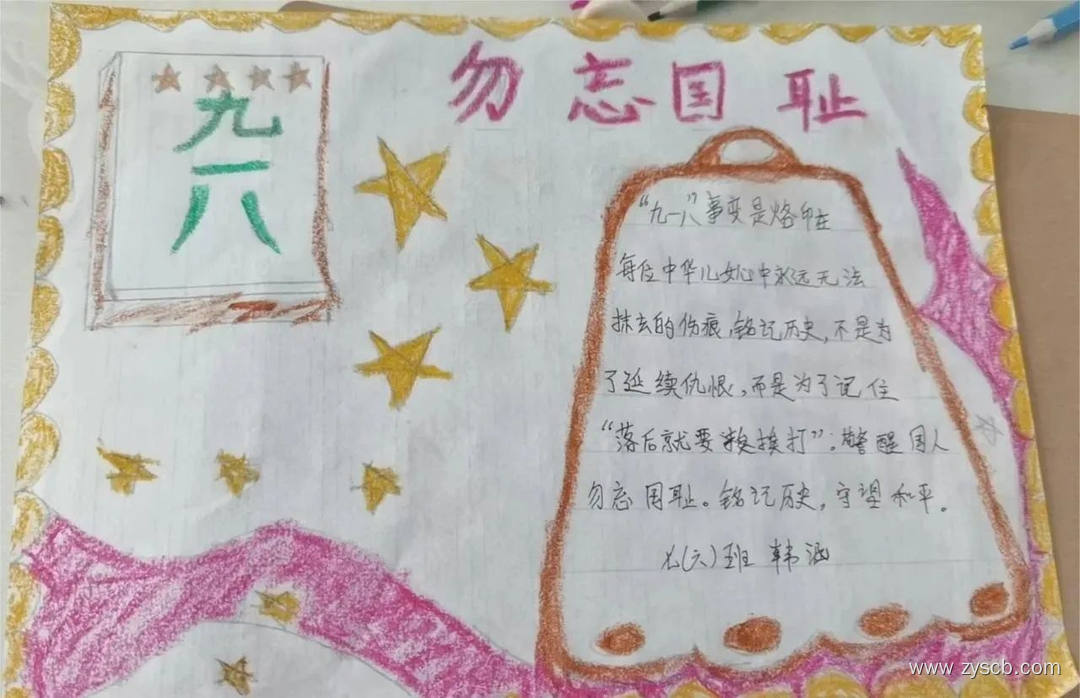 勿忘国耻
九
一
八
“九一八”事变是烙印在
每位中华儿女心中永远无法
抹去的伤痕,铭记历史,不是为
了延续仇恨,而是为了记住
“落后就要挨打”:警醒国人
勿忘国耻。铭记历史,守望和平。
七(六)班 韩涵
www.zyscb.com